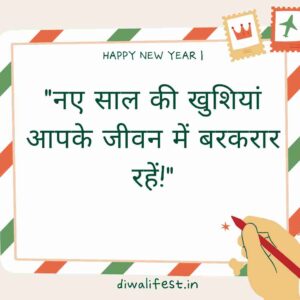 HAPPY NEW YEAR |
"नए साल की खुशियां
आपके जीवन में बरकरार
रहें!"
diwalifest.in